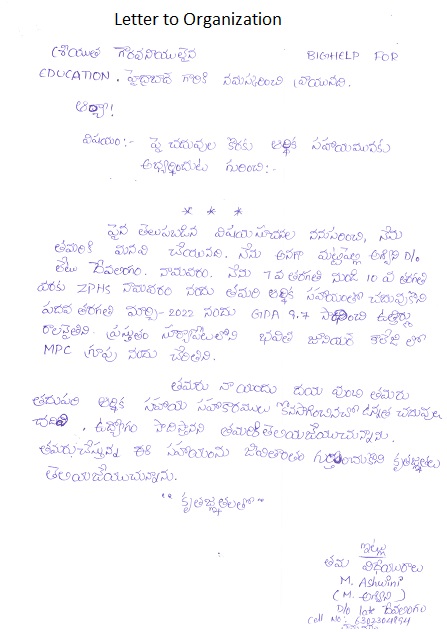 Letter to Organization
శ్రీయుత గౌరవనీయులైన BIGHELP FOR
EDUCATION. హైద్రాబాద్ గారికి నమస్కరించి వ్రాయునది.
ఆర్యా!
విషయం:- పై చదువుల కొరకు ఆర్థిక సహాయమునకు
అభ్యర్థించుట గురించి:-
* * *
పైన తెలుపబడిన విషయసూచనల ననుసరించి, నేను
తమరికి మనవి చేయునది. నేను అనగా అశ్విని D/o
లేటు దేవలింగం. నామవరం. నేను 7వ తరగతి నుండి 10వ తరగతి
వరకు ZPHS నామవరం నందు తమరి ఆర్థిక సహాయంతో చదువుకొని
పదవ తరగతి మార్చి-2022 నందు GPA 9.7 సాధించి ఉత్తీర్ణు
రాలనైతిని. ప్రస్తుతం సూర్యాపేటలోని భవితి జూనియర్ కాలేజీ లో
MPC గ్రూపు నందు చేరితిని.
తమరు నా యందు దయ వుంచి తమరు
తదుపరి ఆర్థిక సహాయ సహకారములు కొనసాగించినచో ఉన్నత చదువులు
చదివి, ఉద్యోగం సాధిస్తానని తమరికి తెలియజేయుచున్నాను.
తమరు చేస్తున్న ఈ సహాయంను జీవితాంతం గుర్తుంచుకొని కృతజ్ఞతలు
తెలియజేయుచున్నాను.
"కృతజ్ఞతలతో"
ఇట్లు
తమ విధేయురాలు
M. Ashwini
(M. అశ్విని)
D/o late దేవలింగం
Cell No: 6302304894